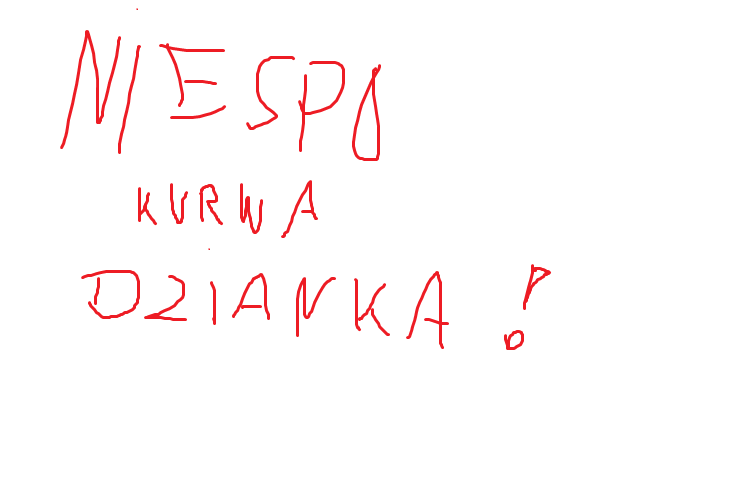 NIESPO
KURWA
DZIANKA!